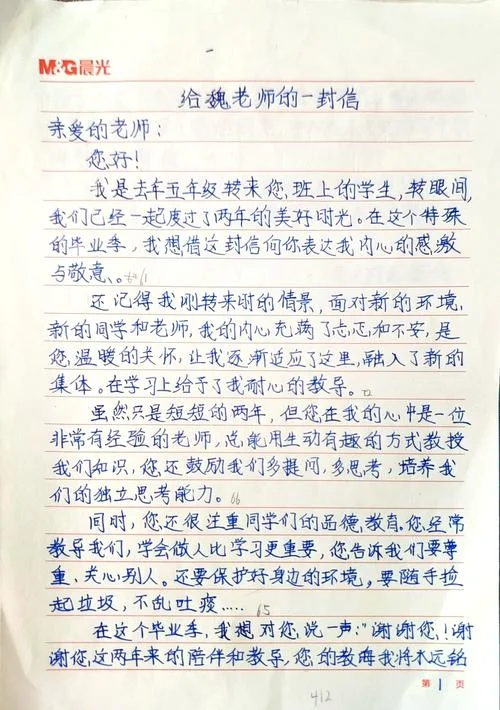 M&G晨光
给魏老师的一封信
亲爱的老师：
您好！
我是去年五年级转来您班上的学生，转眼间，
我们已经一起度过了两年的美好时光。在这个特殊
的毕业季，我想借这封信向你表达我内心的感激
与敬意。
还记得我刚转来时的情景，面对新的环境，
新的同学和老师，我的内心充满了忐忑和不安，是
您温暖的关怀，让我逐渐适应了这里，融入了新的
集体。在学习上给于了我耐心的教导。72
虽然只是短短的两年，但您在我的心中是一位
非常有经验的老师，总能用生动有趣的方式教授
我们知识，您还鼓励我们多提问，多思考，培养我
们的独立思考能力。66
同时，您还很注重同学们的品德教育。您经常
教导我们，学会做人比学习更重要，您告诉我们要尊
重、关心别人。还要保护好身边的环境，要随手捡
起垃圾，不乱吐痰……65
在这个毕业季，我想对您说一声："谢谢您！谢
谢您这两年来的陪伴和教导，您的教诲我将永远铭
第1页
412